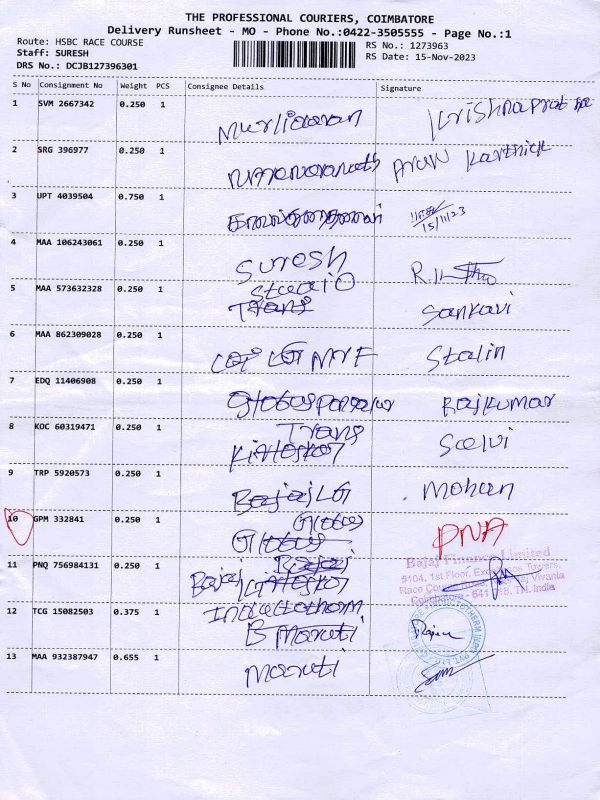 THE PROFESSIONAL COURIERS, COIMBATORE
Delivery Runsheet - MO - Phone No.:0422-3505555 - Page No.:1
Route: HSBC RACE COURSE
RS No.: 1273963
Staff: SURESH
RS Date: 15-Nov-2023
DRS No.: DCJB127396301
S No Consignment No Weight PCS Consignee Details Signature
1 SVM 2667342 0.250 1
2 SRG 396977 0.250 1 Arun Karthick
3 UPT 4039504 0.750 1 15/11/23
4 MAA 106243061 0.250 1 Suresh
Studio
5 MAA 573632328 0.250 1 Trans Sankavi
6 MAA 862309028 0.250 1 Stalin
7 EDQ 11406908 0.250 1 Rajkumar
Trans
8 KOC 60319471 0.250 1 Selvi
9 TRP 5920573 0.250 1 Bajaj LG Mohan
Globus
10 GPM 332841 0.250 1 Globus PNA
Bajaj
11 PNQ 756984131 0.250 1 Bajaj
Bajaj Finance Limited
#104, 1st Floor,
Race Course
Coimbatore - 641 018. TN. India
12 TCG 15082503 0.375 1 Inductotherm
B Maruti
13 MAA 932387947 0.655 1 Maruti